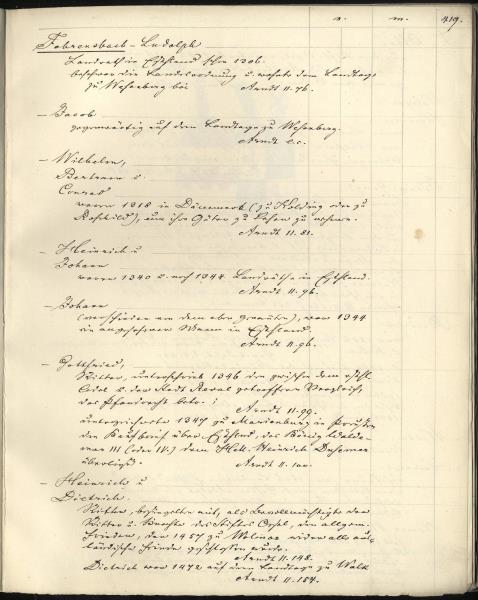 a. m. 419.
Fahrensbach - Ludolph
Landrath in Ehstland schon 1306.
beschwor die Landesordnung u. wohnte dem Landtage
zu Wesenberg bei Arndt II. 76.
- Jacob
gegenwärtig auf dem Landtage zu Wesenberg.
Arndt l.c.
- Wilhelm,
Bertram u.
Conrad
waren 1318 in Dänemark (zu Kolding oder zu
Roskild), um ihre Güter zu Lehen zu nehmen.
Arndt II. 81.
- Heinrich u
Johann
waren 1340 u. noch 1344 Landräthe in Ehstland.
Arndt II. 96.
- Johann
(verschieden von dem eben genannten), war 1344
ein angesehener Mann in Ehstland.
Arndt II. 96.
- Gottfried,
Ritter, unterschrieb 1346 den zwischen dem ehstl.
Adel u. der Stadt Reval getroffenen Vergleich,
das Pfandrecht betr. ;
Arndt II. 99.
unterzeichnete 1347 zu Marienburg in Preußen
den Kaufbrief über Ehstland, das König Walde-
mar III (oder IV.) dem HM. Heinrich Dusemer
überließ. Arndt II. 100.
- Heinrich u
Dietrich.
Ritter, besiegelten mit, als Bevollmächtigte der
Ritter u. Knechte des Stiftes Oesel, den allgem.
Frieden, der 1457 zu Wolmar wider alle aus-
ländische Feinde geschlossen wurde.
Arndt II. 148.
Dietrich war 1472 auf dem Landtage zu Walk
Arndt II. 154.